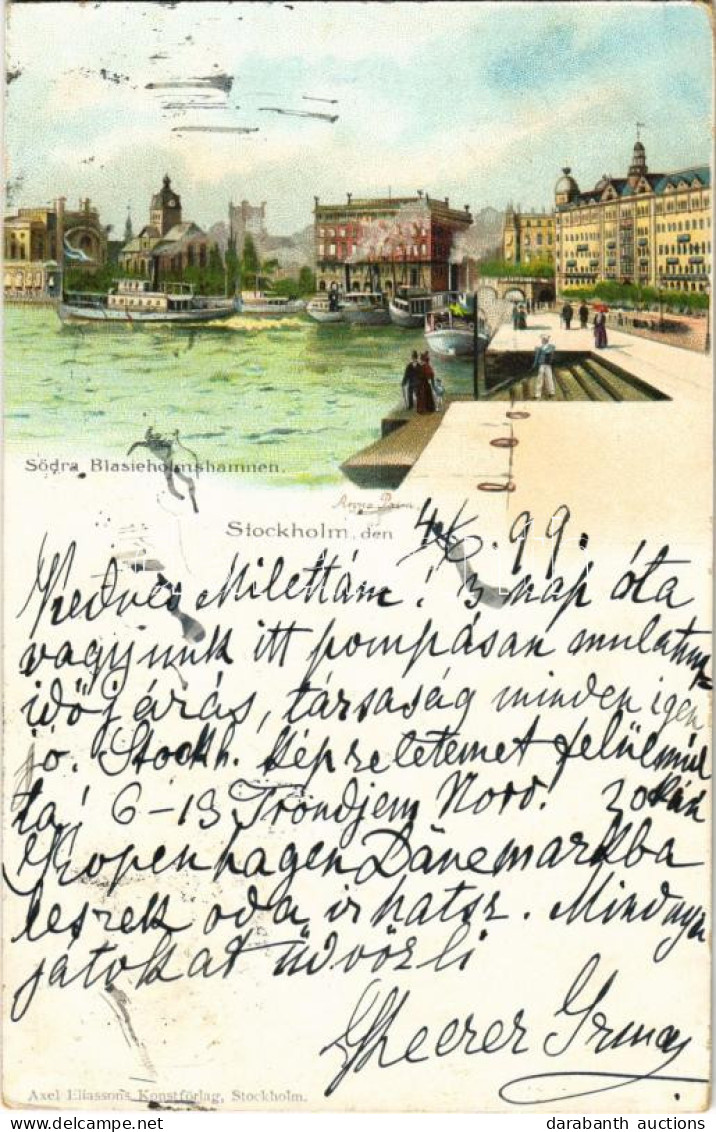 Södra Blasieholmshamnen.
Stockholm, den 4/6. 99.
Kedves Milettám! 3 nap óta
vagyunk itt pompásan mulatunk
időjárás, társaság minden igen
jó. Stockh. képzeletemet felülmúl
ta! 6–13 Tröndjem Norv. 20kán
Kopenhagen Dänemarkba
leszek oda irhatsz. Mindnyá
jatokat üdvözli
Scheerer
Axel Eliassons Konstförlag, Stockholm.
darabanth auctions